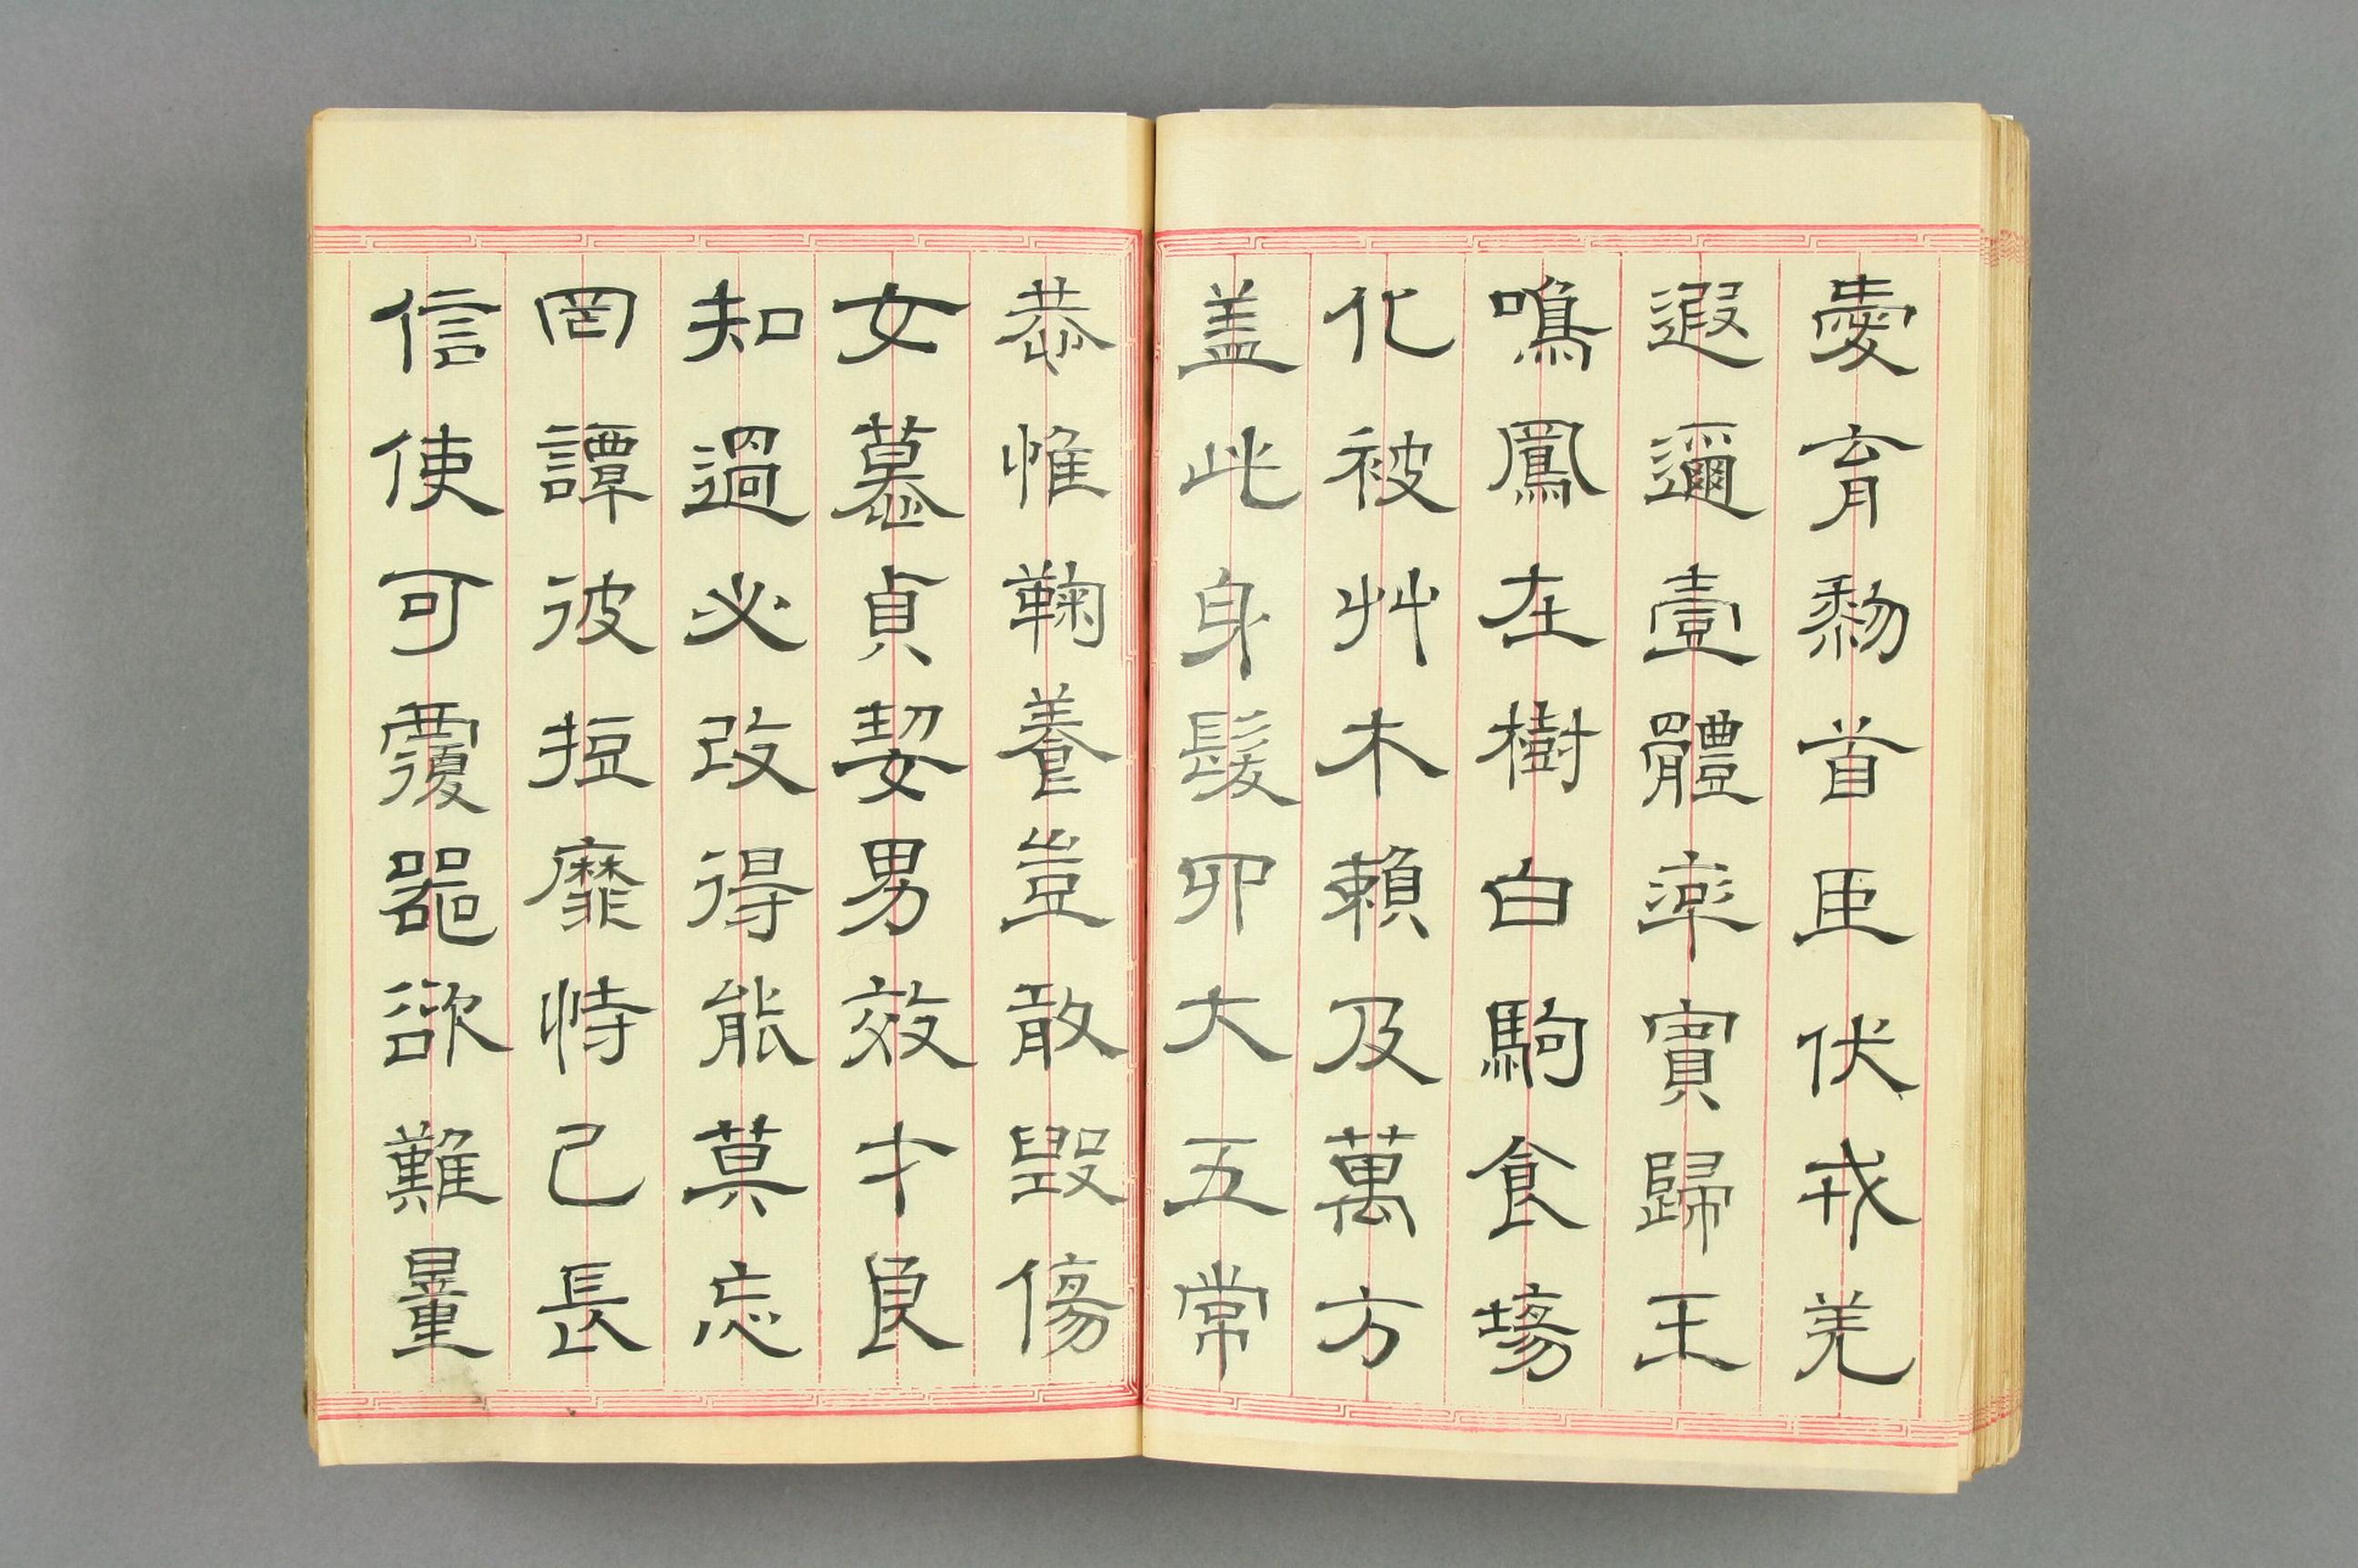 愛育黎首臣伏戎羌
遐邇壹體率賓歸王
鳴鳳在樹白駒食場
化被艸木賴及萬方
蓋此身髮四大五常
恭惟鞠養豈敢毀傷
女慕貞絜男效才良
知過必改得能莫忘
罔譚彼短靡恃己長
信使可覆器欲難量